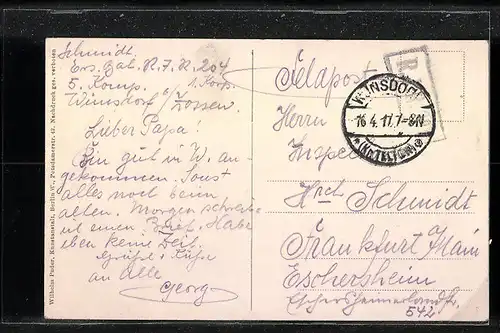 Schmidt.
Ers. Bat. R. J. R. 204
5. Komp. 1. Kork.
Wünsdorf b/ Zossen.
Lieber Papa!
Bin gut in W. an-
gekommen. Sonst
alles noch beim
alten. Morgen schreibe
ich einen Brief. Habe
eben keine Zeit.
Grüße + Küsse
an Alle
Georg
Wilhelm Puder, Kunstanstalt, Berlin W., Potsdamerstr. Nachdruck ges. verboten
Feldpost
WÜNSDORF
16.4.17. 7-8N
* (Kr. TELTOW) *
Herrn
Inspektor
Hrch. Schmidt
Frankfurt Main
Eschersheim
Eschersheimerlandstr.
542